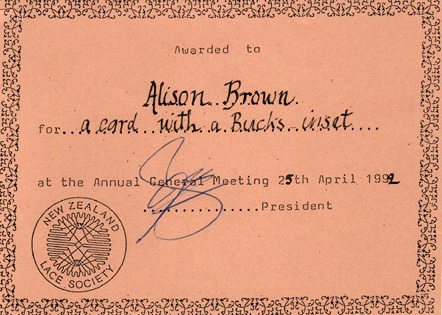 Awarded to
Alison Brown.
for...a card...with a Bucks...inset....
at the Annual General Meeting 25th April 1992
................President
NEW ZEALAND
LACE SOCIETY